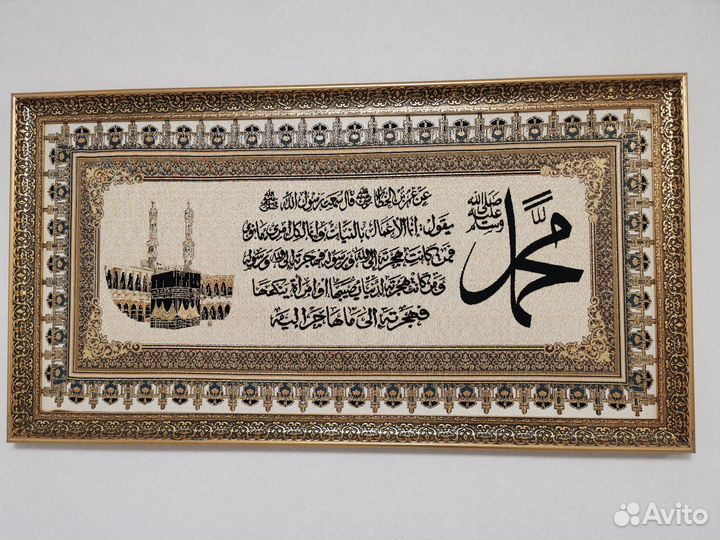 محمد
صلى الله عليه وسلم
عن عمر بن الخطاب قال سمعت رسول الله ﷺ
يقول: إنما الأعمال بالنيات وإنما لكل امرئ ما نوى
فمن كانت هجرته إلى الله ورسوله فهجرته إلى الله ورسوله
ومن كانت هجرته لدنيا يصيبها أو امرأة ينكحها
فهجرته إلى ما هاجر إليه
Avito